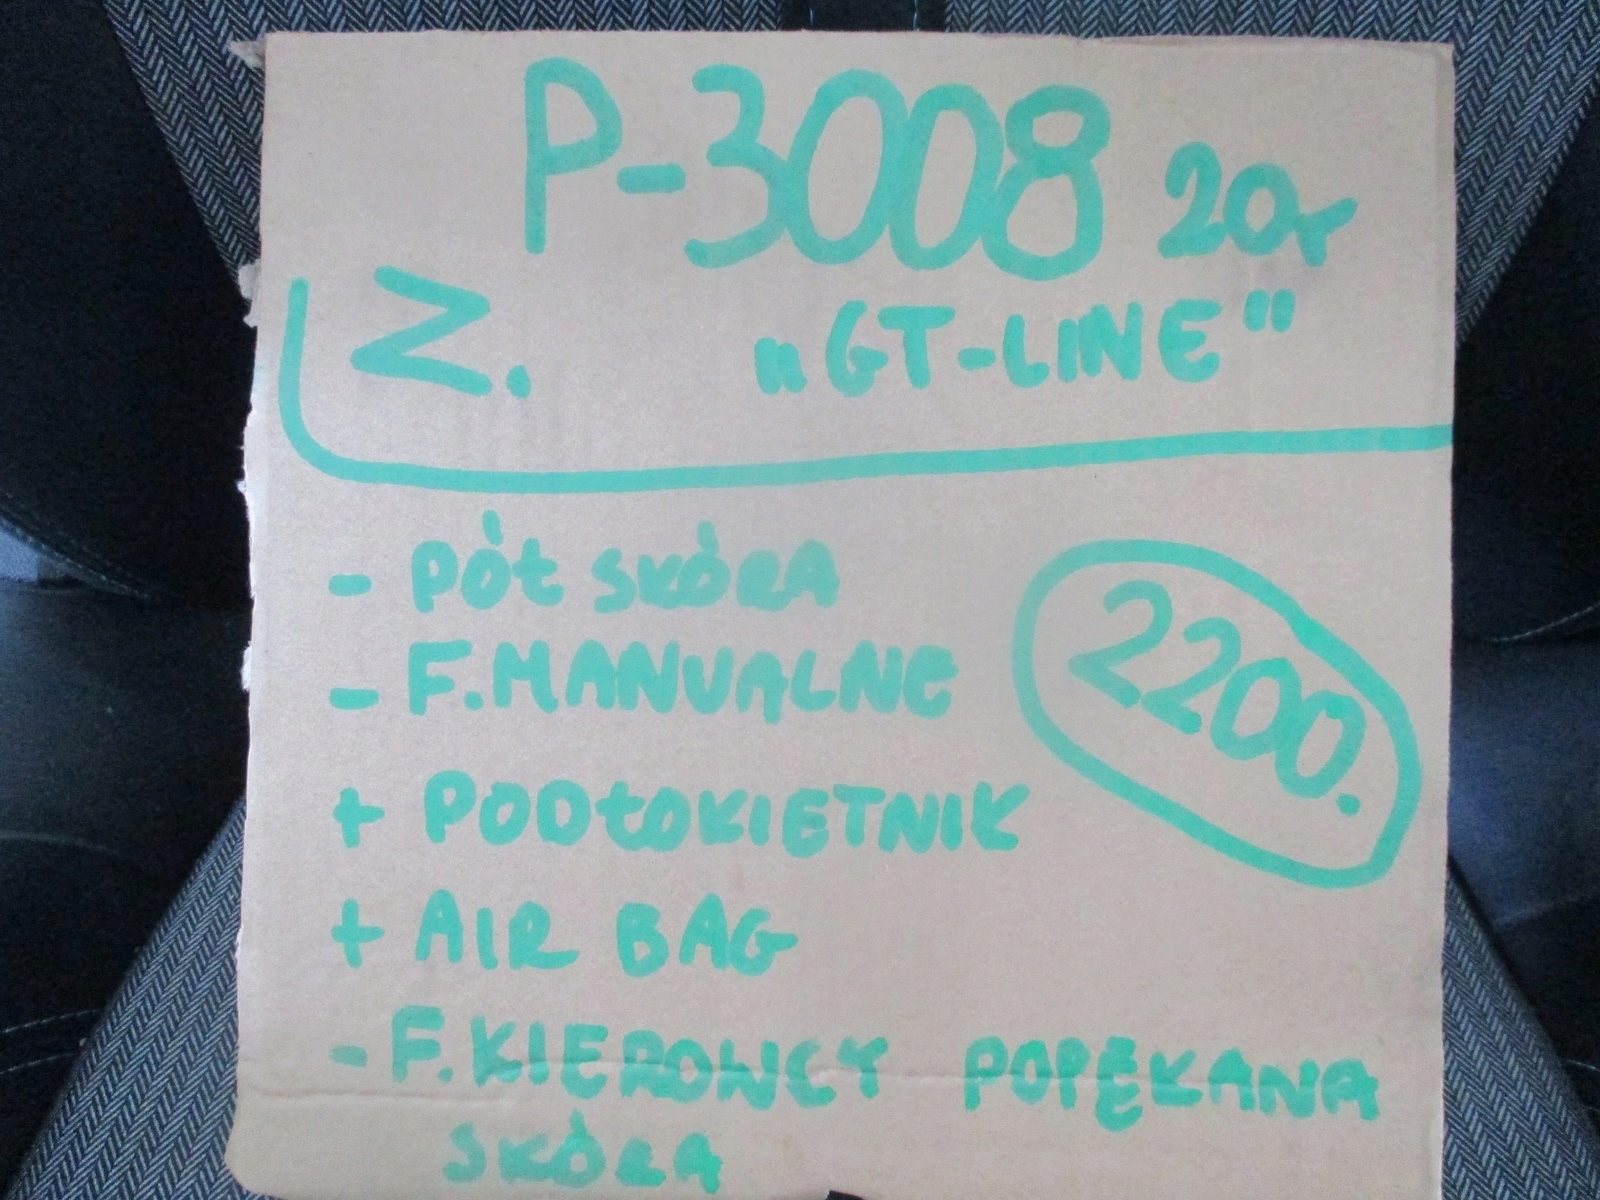 P-3008 20r
Z. „GT-LINE"
- PÓŁ SKÓRA
- F.MANUALNE
2200.
+ PODŁOKIETNIK
+ AIR BAG
- F.KIEROWCY POPĘKANA
SKÓRA